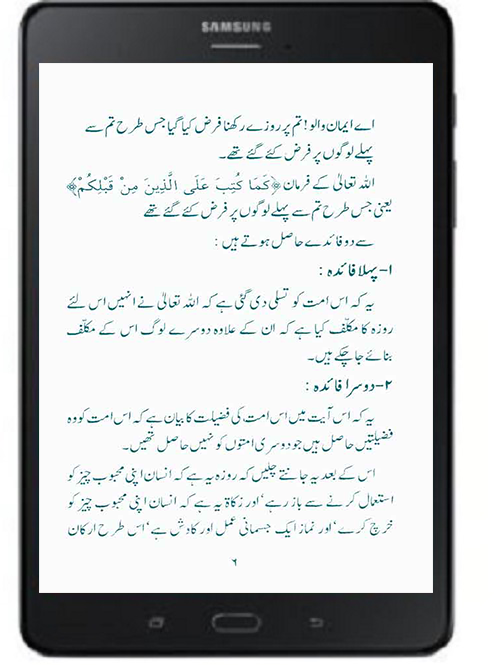 SAMSUNG
اے ایمان والو! تم پر روزے رکھنا فرض کیا گیا جس طرح تم سے
پہلے لوگوں پر فرض کئے گئے تھے۔
اللہ تعالیٰ کے فرمان ﴿كَمَا كُتِبَ عَلَى الَّذِينَ مِنْ قَبْلِكُمْ﴾
یعنی جس طرح تم سے پہلے لوگوں پر فرض کئے گئے تھے
سے دو فائدے حاصل ہوتے ہیں :
۱- پہلا فائدہ :
یہ کہ اس امت کو تسلی دی گئی ہے کہ اللہ تعالیٰ نے انہیں اس لئے
روزہ کا مکلّف کیا ہے کہ ان کے علاوہ دوسرے لوگ اس کے مکلّف
بنائے جا چکے ہیں۔
۲- دوسرا فائدہ :
یہ کہ اس آیت میں اس امت کی فضیلت کا بیان ہے کہ اس امت کو وہ
فضیلتیں حاصل ہیں جو دوسری امتوں کو نہیں حاصل تھیں۔
اس کے بعد یہ جانتے چلیں کہ روزہ یہ ہے کہ انسان اپنی محبوب چیز کو
استعمال کرنے سے باز رہے‘ اور زکاۃ یہ ہے کہ انسان اپنی محبوب چیز کو
خرچ کرے‘ اور نماز ایک جسمانی عمل اور کاوش ہے‘ اس طرح ارکان
۶